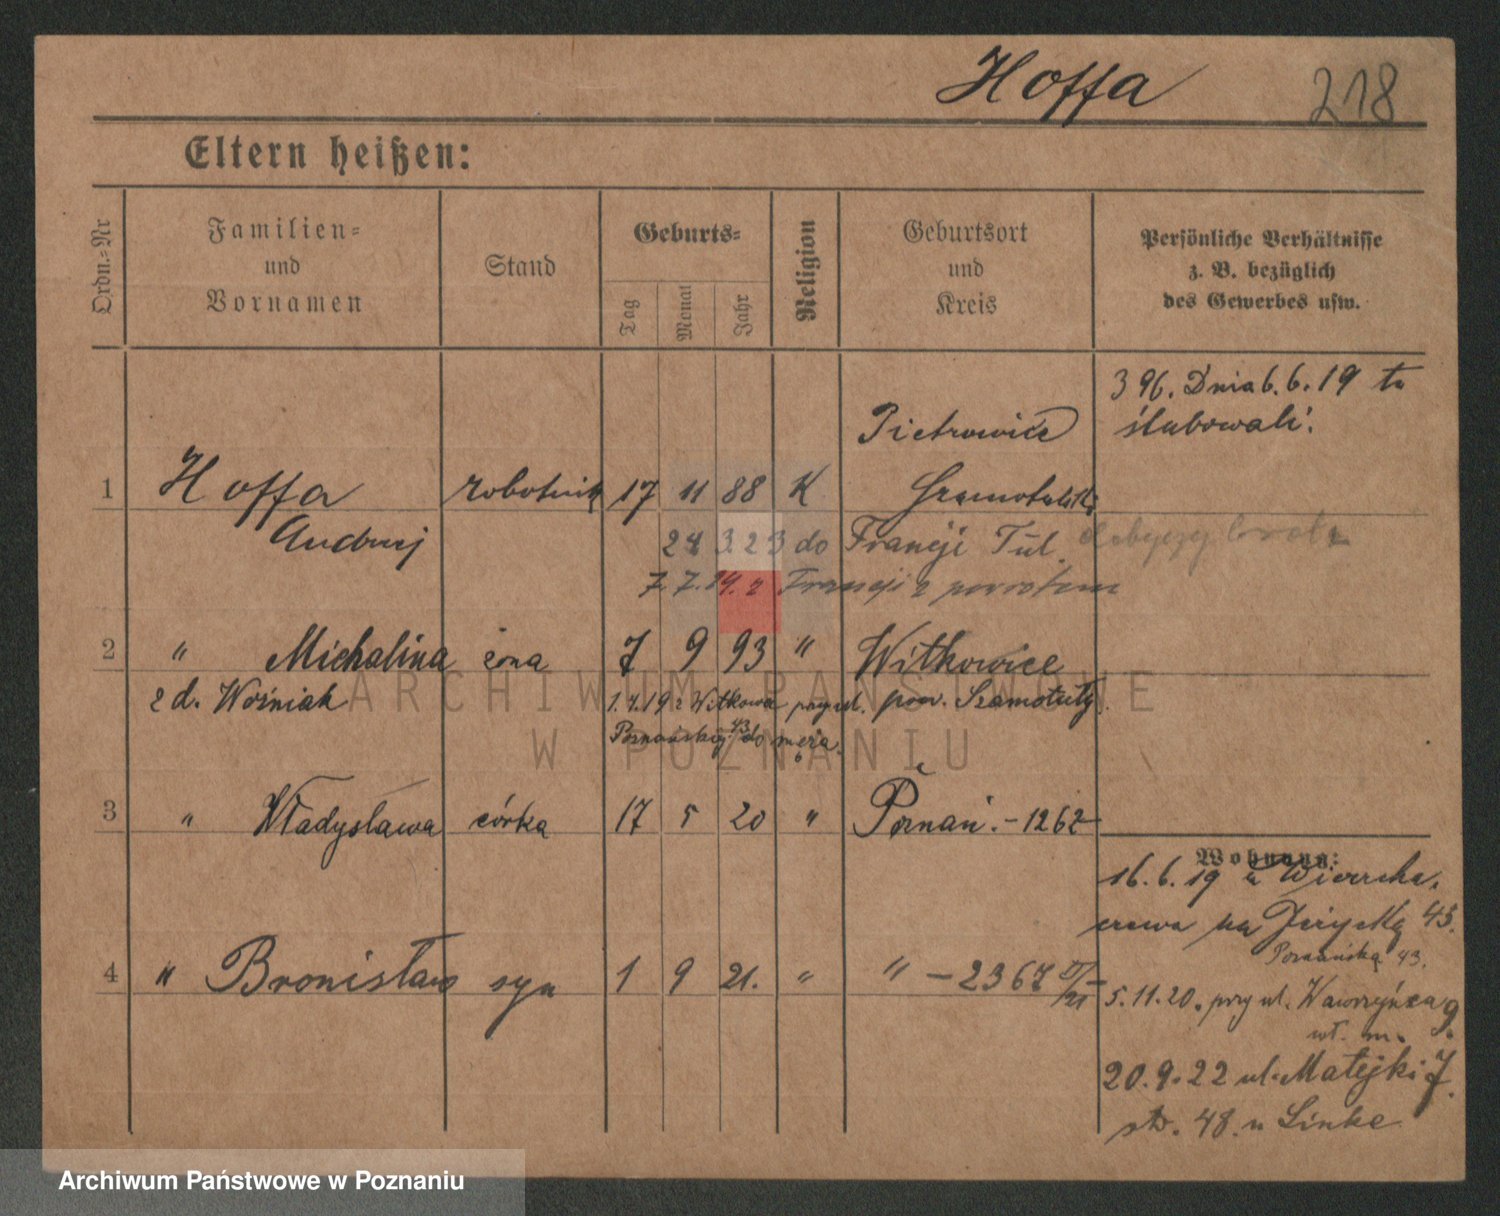 Hoffa 218
Eltern heißen:
Ordn.-Nr
Familien-
und
Vornamen
Stand
Geburts-
Tag
Monat
Jahr
Religion
Geburtsort
und
Kreis
Persönliche Verhältnisse
z. B. bezüglich
des Gewerbes usw.
396. Dnia 6.6.19 tu
ślubowali.
Pietrowice
1 Hoffa robotnik 17 11 88 K
Andrzej
24 3 23 do Francji Tul.
7.7.24. z Francji z powrotem
2 " Michalina żona 7 9 93 " Witkowice
z d. Woźniak pow. Szamotuły.
1.7.19 z przy ul.
Poznańskiej 43 do męża.
3 " Władysława córka 17 5 20 " Poznań. - 1262
Wohnung:
16.6.19 u
na 45.
Poznańska 43.
4 " Bronisław syn 1 9 21. " " - 2367
5.11.20. przy ul. Wawrzyńca 9.
wł. m.
20.9.22 ul. Matejki 7.
str. 48. u Linke
ARCHIWUM PAŃSTWOWE
W POZNANIU
Archiwum Państwowe w Poznaniu